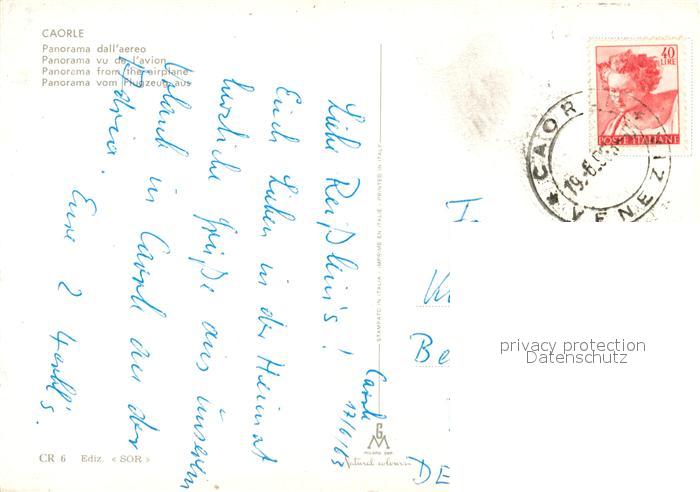 CAORLE
Panorama dall'aereo
Panorama vu de l'avion
Panorama from the airplane
Panorama vom Flugzeug aus
40
LIRE
POSTE ITALIANE
CAOR
VENEZI
19-6
Caorle
17/6/63
Liebe Reißlein's!
Euch Lieben in der Heimat
herzliche Grüße aus unserem
Urlaub in Caorle an der
Adria.
Eure 2
STAMPATO IN ITALIA - IMPRIMÉ EN ITALIE - PRINTED IN ITALY
Be
DE
privacy protection
Datenschutz
CR 6 Ediz. « SOR »
GM
Natural colours